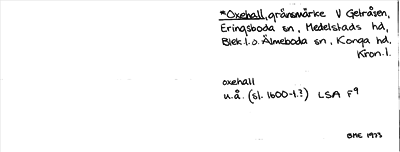 *Oxehall, gränsmärke V Getråsen,
Eringsboda sn, Medelstads hd,
Blek.l. o. Älmeboda sn, Konga hd,
Kron.l.
oxehall
u.å. (sl. 1600-t.?) LSA F9
BME 1973